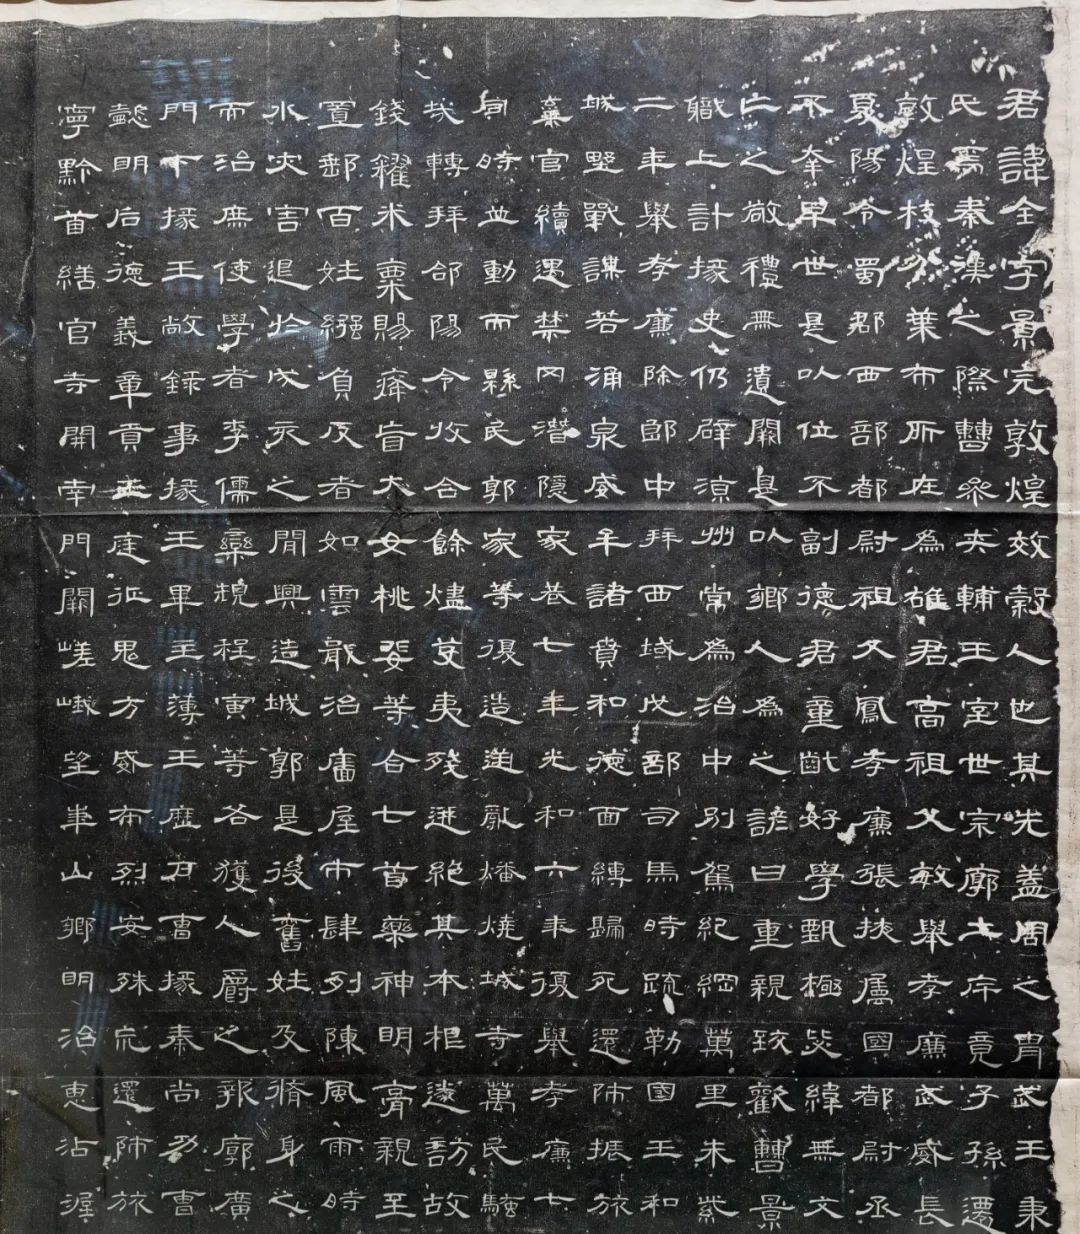 君諱全字景完敦煌效穀人也其先蓋周之冑武王秉
氏焉秦漢之際曹參夾輔王室世宗廓土斥竟子孫遷
敦煌枝分葉布所在為雄君高祖父敏舉孝廉武威長
夏陽令蜀郡西部都尉祖父鳳孝廉張掖屬國都尉丞
不幸早世是以位不副德君童齔好學甄極毖緯無文
亡之敬禮無遺闕是以鄉人為之諺曰重親致歡曹景
職上計掾史仍辟涼州常為治中別駕紀綱萬里朱紫
二年舉孝廉除郎中拜西域戊部司馬時疏勒國王和
城野戰謀若涌泉威牟諸賁和德面縛歸死還師振旅
棄官續遇禁网潛隱家巷七年光和六年復舉孝廉七
同時並動而縣民郭家等復造逆亂燔燒城寺萬民騷
城轉拜郃陽令收合餘燼芟夷殘迸絕其本根遂訪故
錢糴米粟賜癃盲大女桃婓等合七首藥神明膏親至
置郵百姓繈負反者如雲戢治廧屋市肆列陳風雨時
水灾害退於戌亥之間興造城郭是後舊姓及脩身之
而治庶使學者李儒欒規程寅等各獲人爵之報廓廣
門下掾王敞錄事掾王畢主薄王歷戶曹掾秦尚功曹
懿明后德義章貢王庭征鬼方威布烈安殊荒還師旅
寧黔首繕官寺開南門闕嵯峨望華山鄉明治惠沾渥